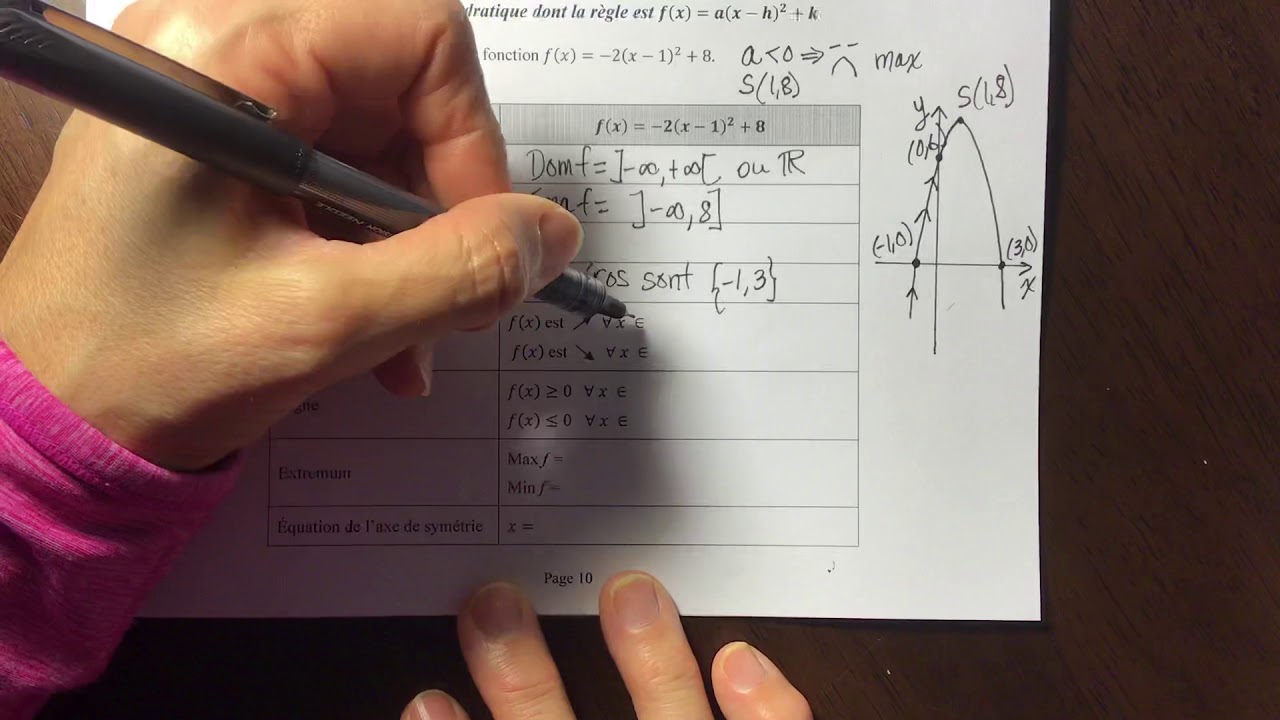 dratique dont la règle est f(x) = a(x − h)² + k
fonction f(x) = −2(x − 1)² + 8. a<0 ⇒ max
S(1,8)
f(x) = −2(x − 1)² + 8
Domf = ]-∞,+∞[ ou ℝ
f = ]-∞, 8]
ros sont {-1, 3}
f(x) est ↗ ∀ x ∈
f(x) est ↘ ∀ x ∈
gne
f(x) ≥ 0 ∀ x ∈
f(x) ≤ 0 ∀ x ∈
Extremum
Max f =
Min f =
Équation de l'axe de symétrie x =
Page 10
S(1,8)
y
(0,6
(-1,0)
(3,0)
x